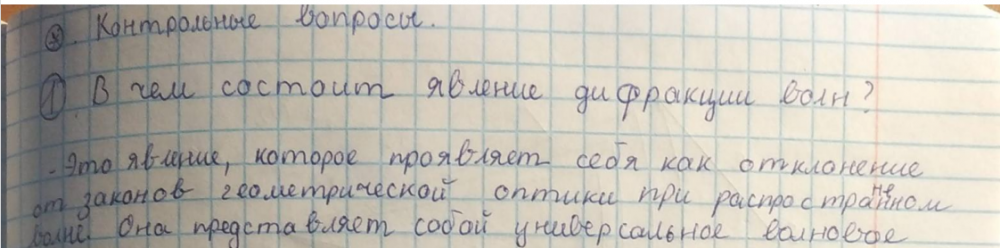 ⊗. Контрольные вопросы.
① В чем состоит явление дифракции волн?
- Это явление, которое проявляет себя как отклонение
от законов геометрической оптики при распростране́нном
волне. Она представляет собой универсальное волновое